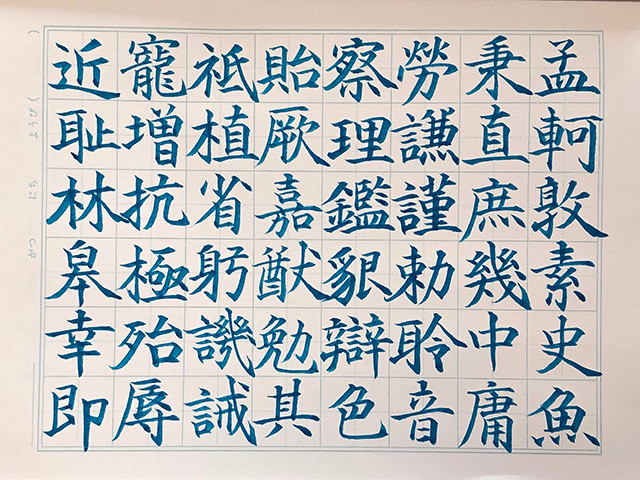 孟軻敦素史魚
秉直庶幾中庸
勞謙謹勅聆音
察理鑑貌辯色
貽厥嘉猷勉其
祗植省躬譏誡
寵増抗極殆辱
近耻林皋幸即
がつ にち ようび( )